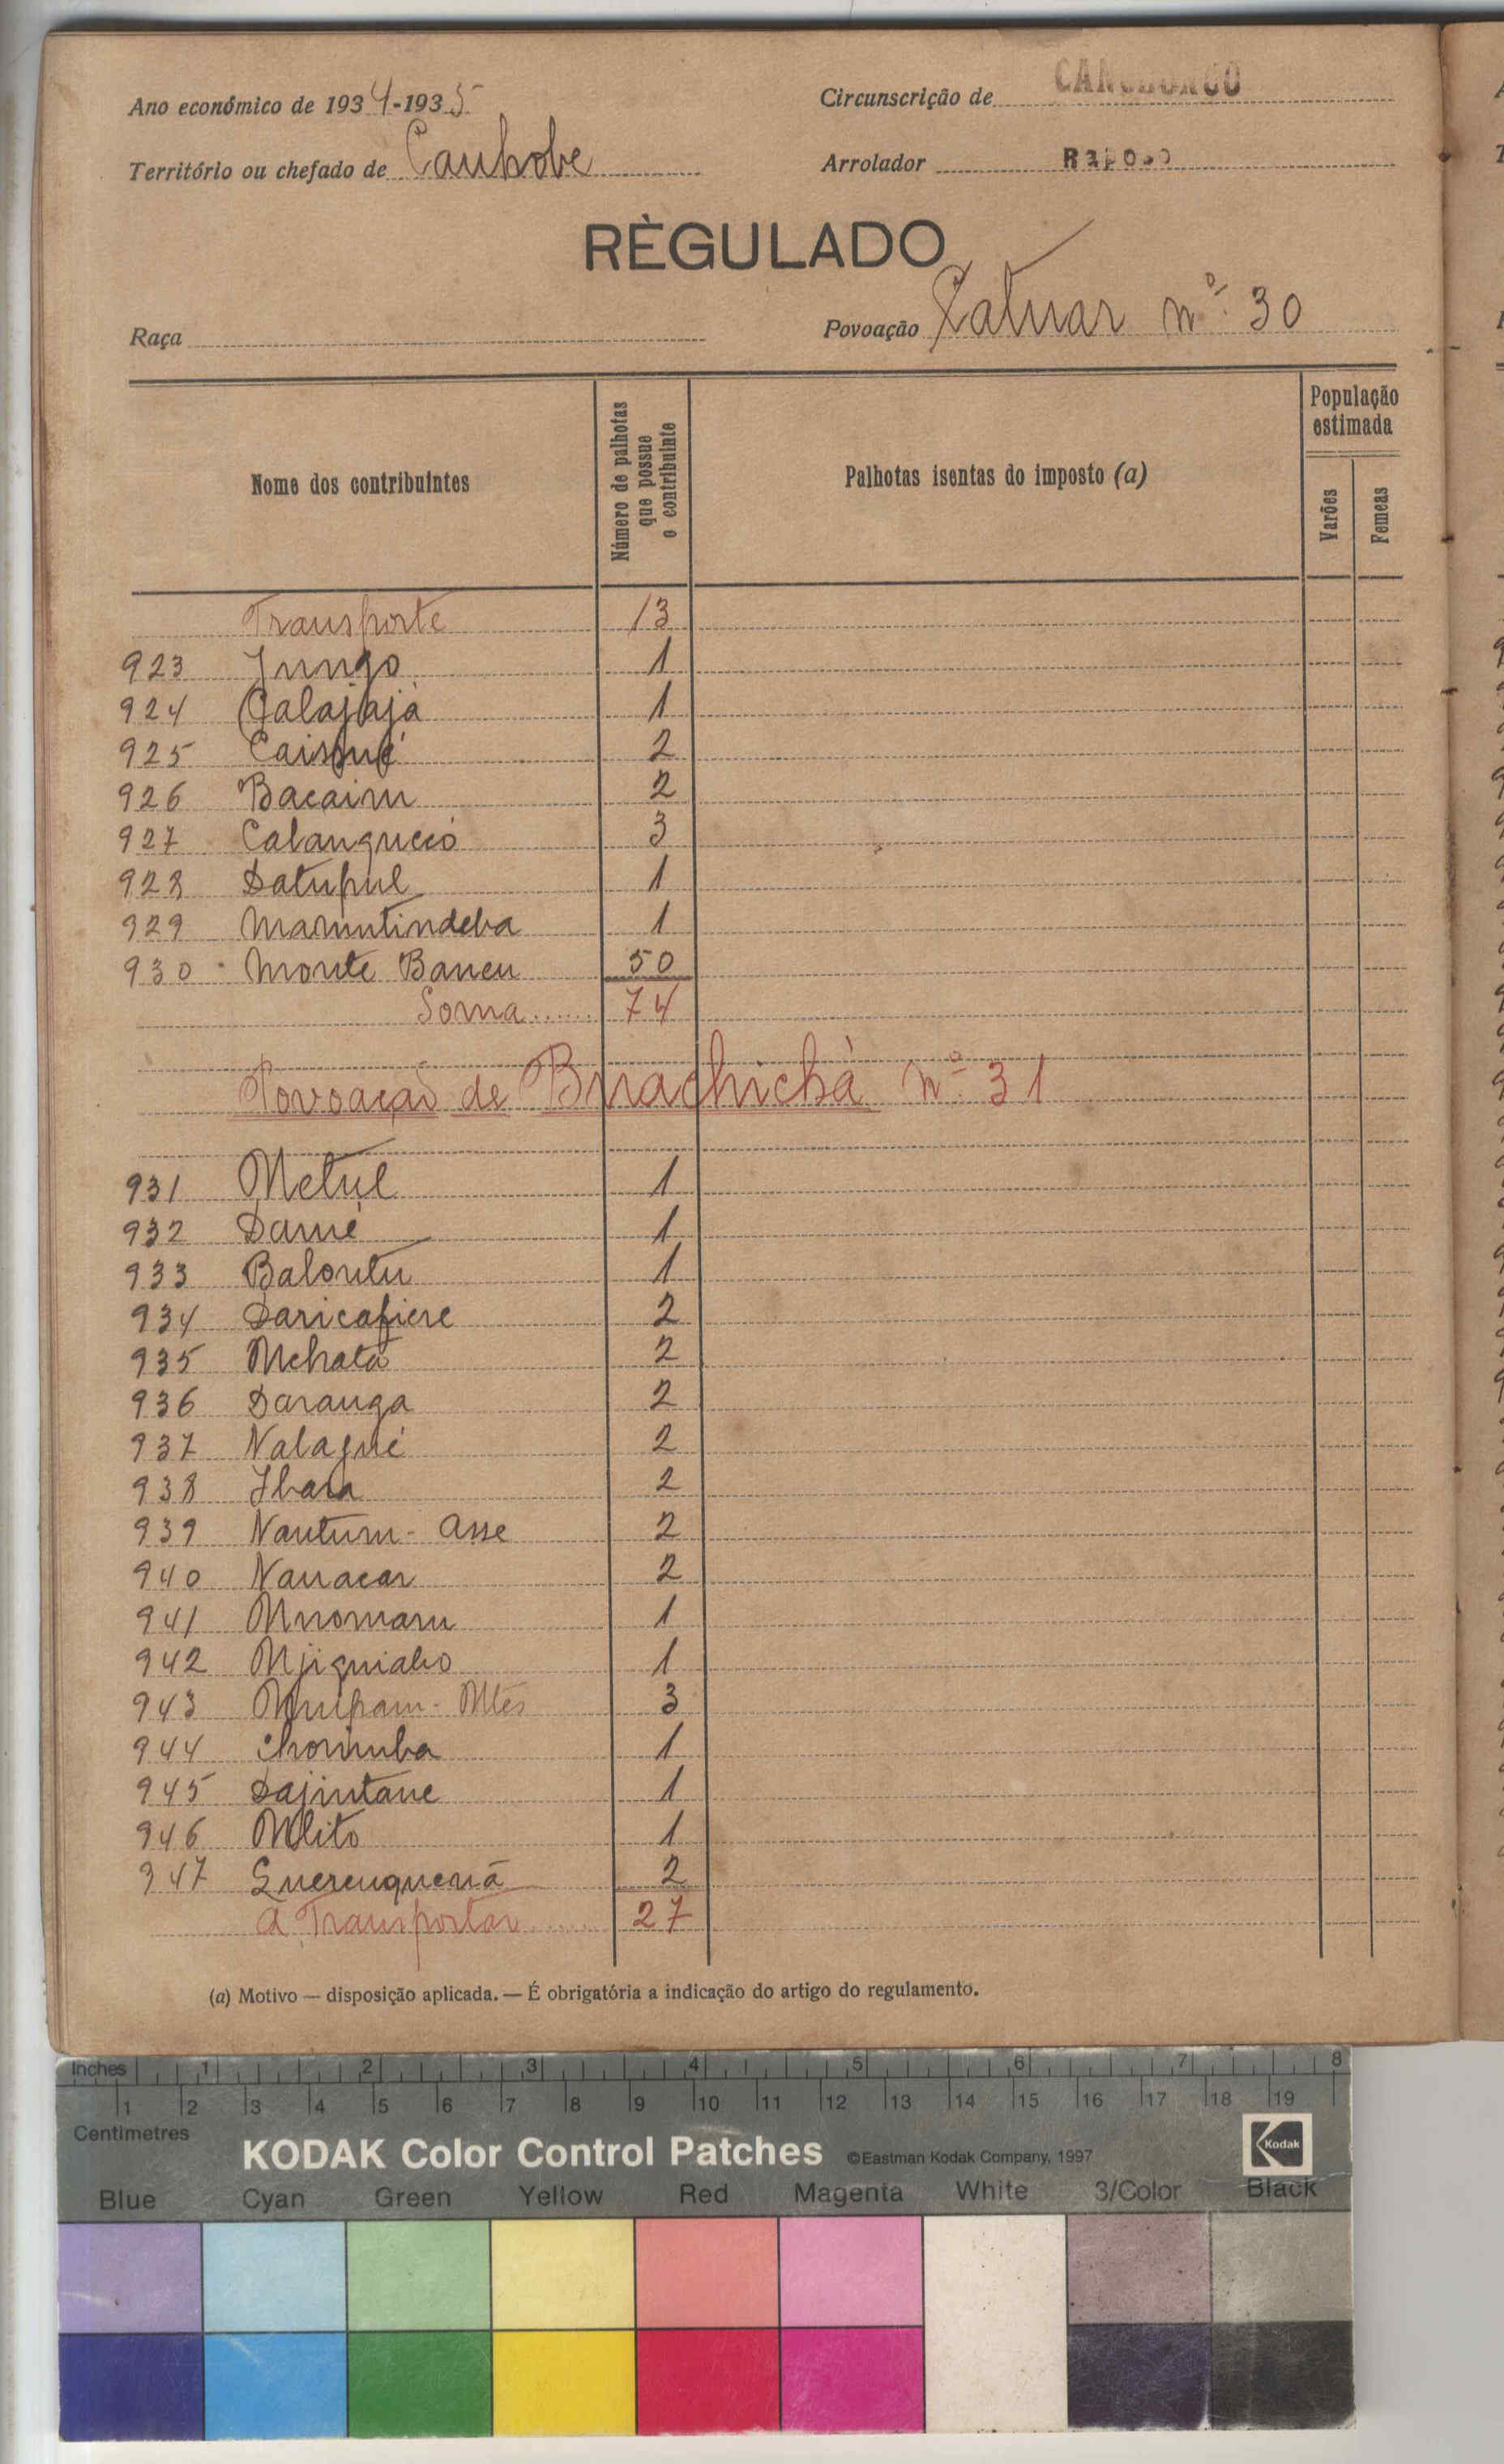 Ano económico de 1934-1935
Circunscrição de CANCHUNGO
Território ou chefado de Canhobe
Arrolador Raposo
RÈGULADO
Raça
Povoação Catuar nº 30
Nome dos contribuintes
Número de palhotas que possue o contribuinte
Palhotas isentas do imposto (a)
População estimada
Varões
Femeas
Transporte 13
923 Jungo 1
924 Calajajá 1
925 2
926 Bacaim 2
927 3
928 Datupul 1
929 Mamutindeba 1
930 Monte Bancu 50
Soma...... 74
Povoação de Bruachichà nº 31
931 Metul 1
932 Damé 1
933 Balontu 1
934 Daricafiere 2
935 Mchata 2
936 Daranga 2
937 Nalagué 2
938 Ibara 2
939 Nautum - Asse 2
940 Nanacar 2
941 Mnomaru 1
942 Mjiguiabo 1
943 3
944 Chorimba 1
945 Dajintane 1
946 Mlito 1
947 Querenquená 2
A Transportar...... 27
(a) Motivo — disposição aplicada. — É obrigatória a indicação do artigo do regulamento.
Inches 1 2 3 4 5 6 7 8
1 2 3 4 5 6 7 8 9 10 11 12 13 14 15 16 17 18 19
Centimetres
KODAK Color Control Patches ©Eastman Kodak Company, 1997 Kodak
Blue Cyan Green Yellow Red Magenta White 3/Color Black